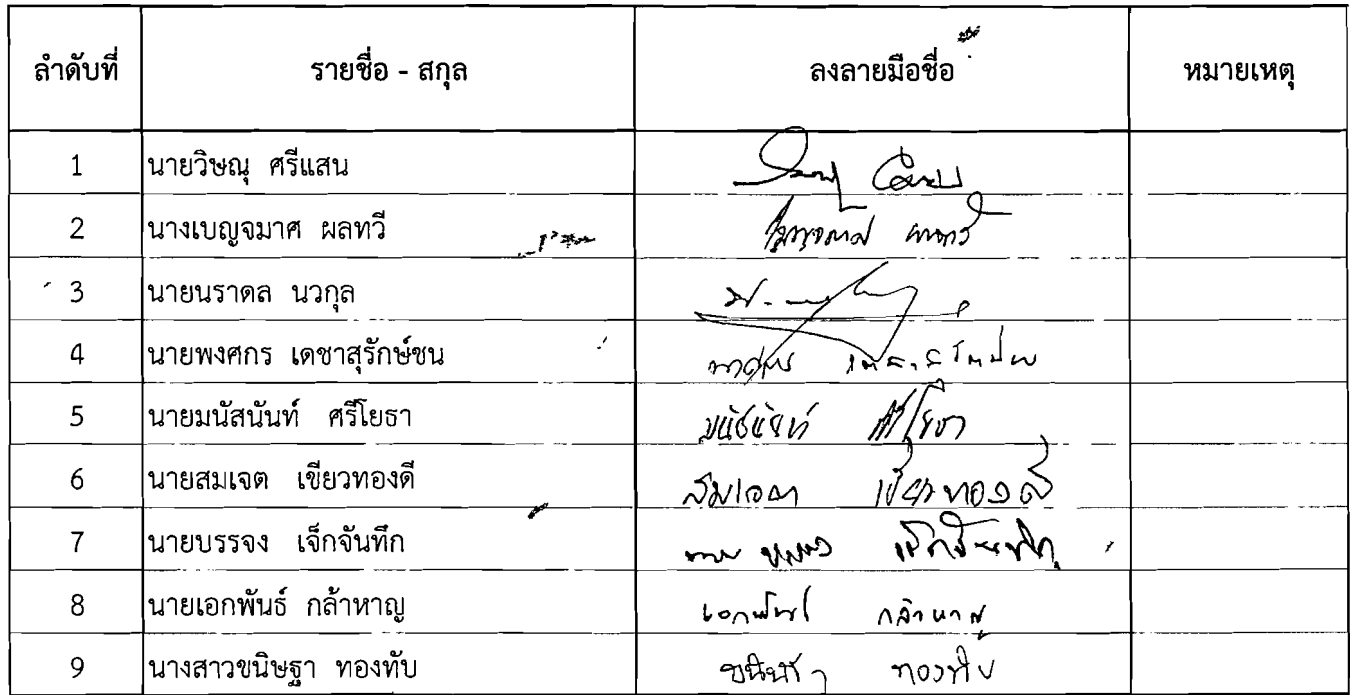 ลำดับที่ รายชื่อ - สกุล ลงลายมือชื่อ หมายเหตุ
1 นายวิษณุ ศรีแสน
2 นางเบญจมาศ ผลทวี เบญจมาศ ผลทวี
3 นายนราดล นวกุล
4 นายพงศกร เดชาสุรักษ์ชน
5 นายมนัสนันท์ ศรีโยธา มนัสนันท์ ศรีโยธา
6 นายสมเจต เขียวทองดี สมเจต เขียวทองดี
7 นายบรรจง เจ็กจันทึก
8 นายเอกพันธ์ กล้าหาญ เอกพันธ์ กล้าหาญ
9 นางสาวขนิษฐา ทองทับ ขนิษฐา ทองทับ